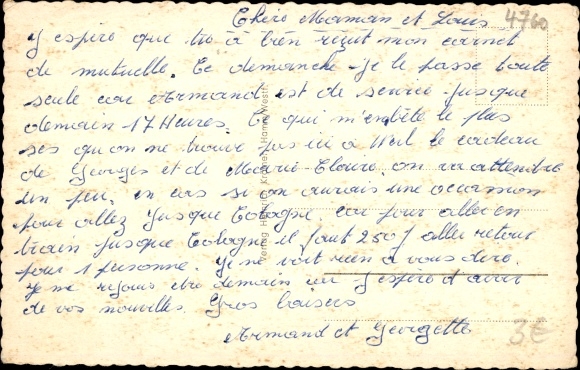 Chéro Maman et Louis
4760
J espère que tu à bien reçut mon carnet
de mutuelle. Ce demanche je le passe toute
seule car Armand est de servie jusque
demain 17 Heures. Ce qui m'embête le plus
ses qu on ne trouve pas ici à Werl le cadeau
de Georges et de Marie-Claire. on va attendre
un peu. en cas si on aurais une occasion
pour allez jusque Cologne. car pour aller en
train jusque Cologne il faut 250 f aller retour
pour 1 personne. Je ne voit rien à vous dire.
Je me rejouis etre demain car j espère d'avoir
de vos nouvelles. Gros baisers
Armand et Georgette
3€
Verlag Heinrich Krämer, Hamm/Westf.